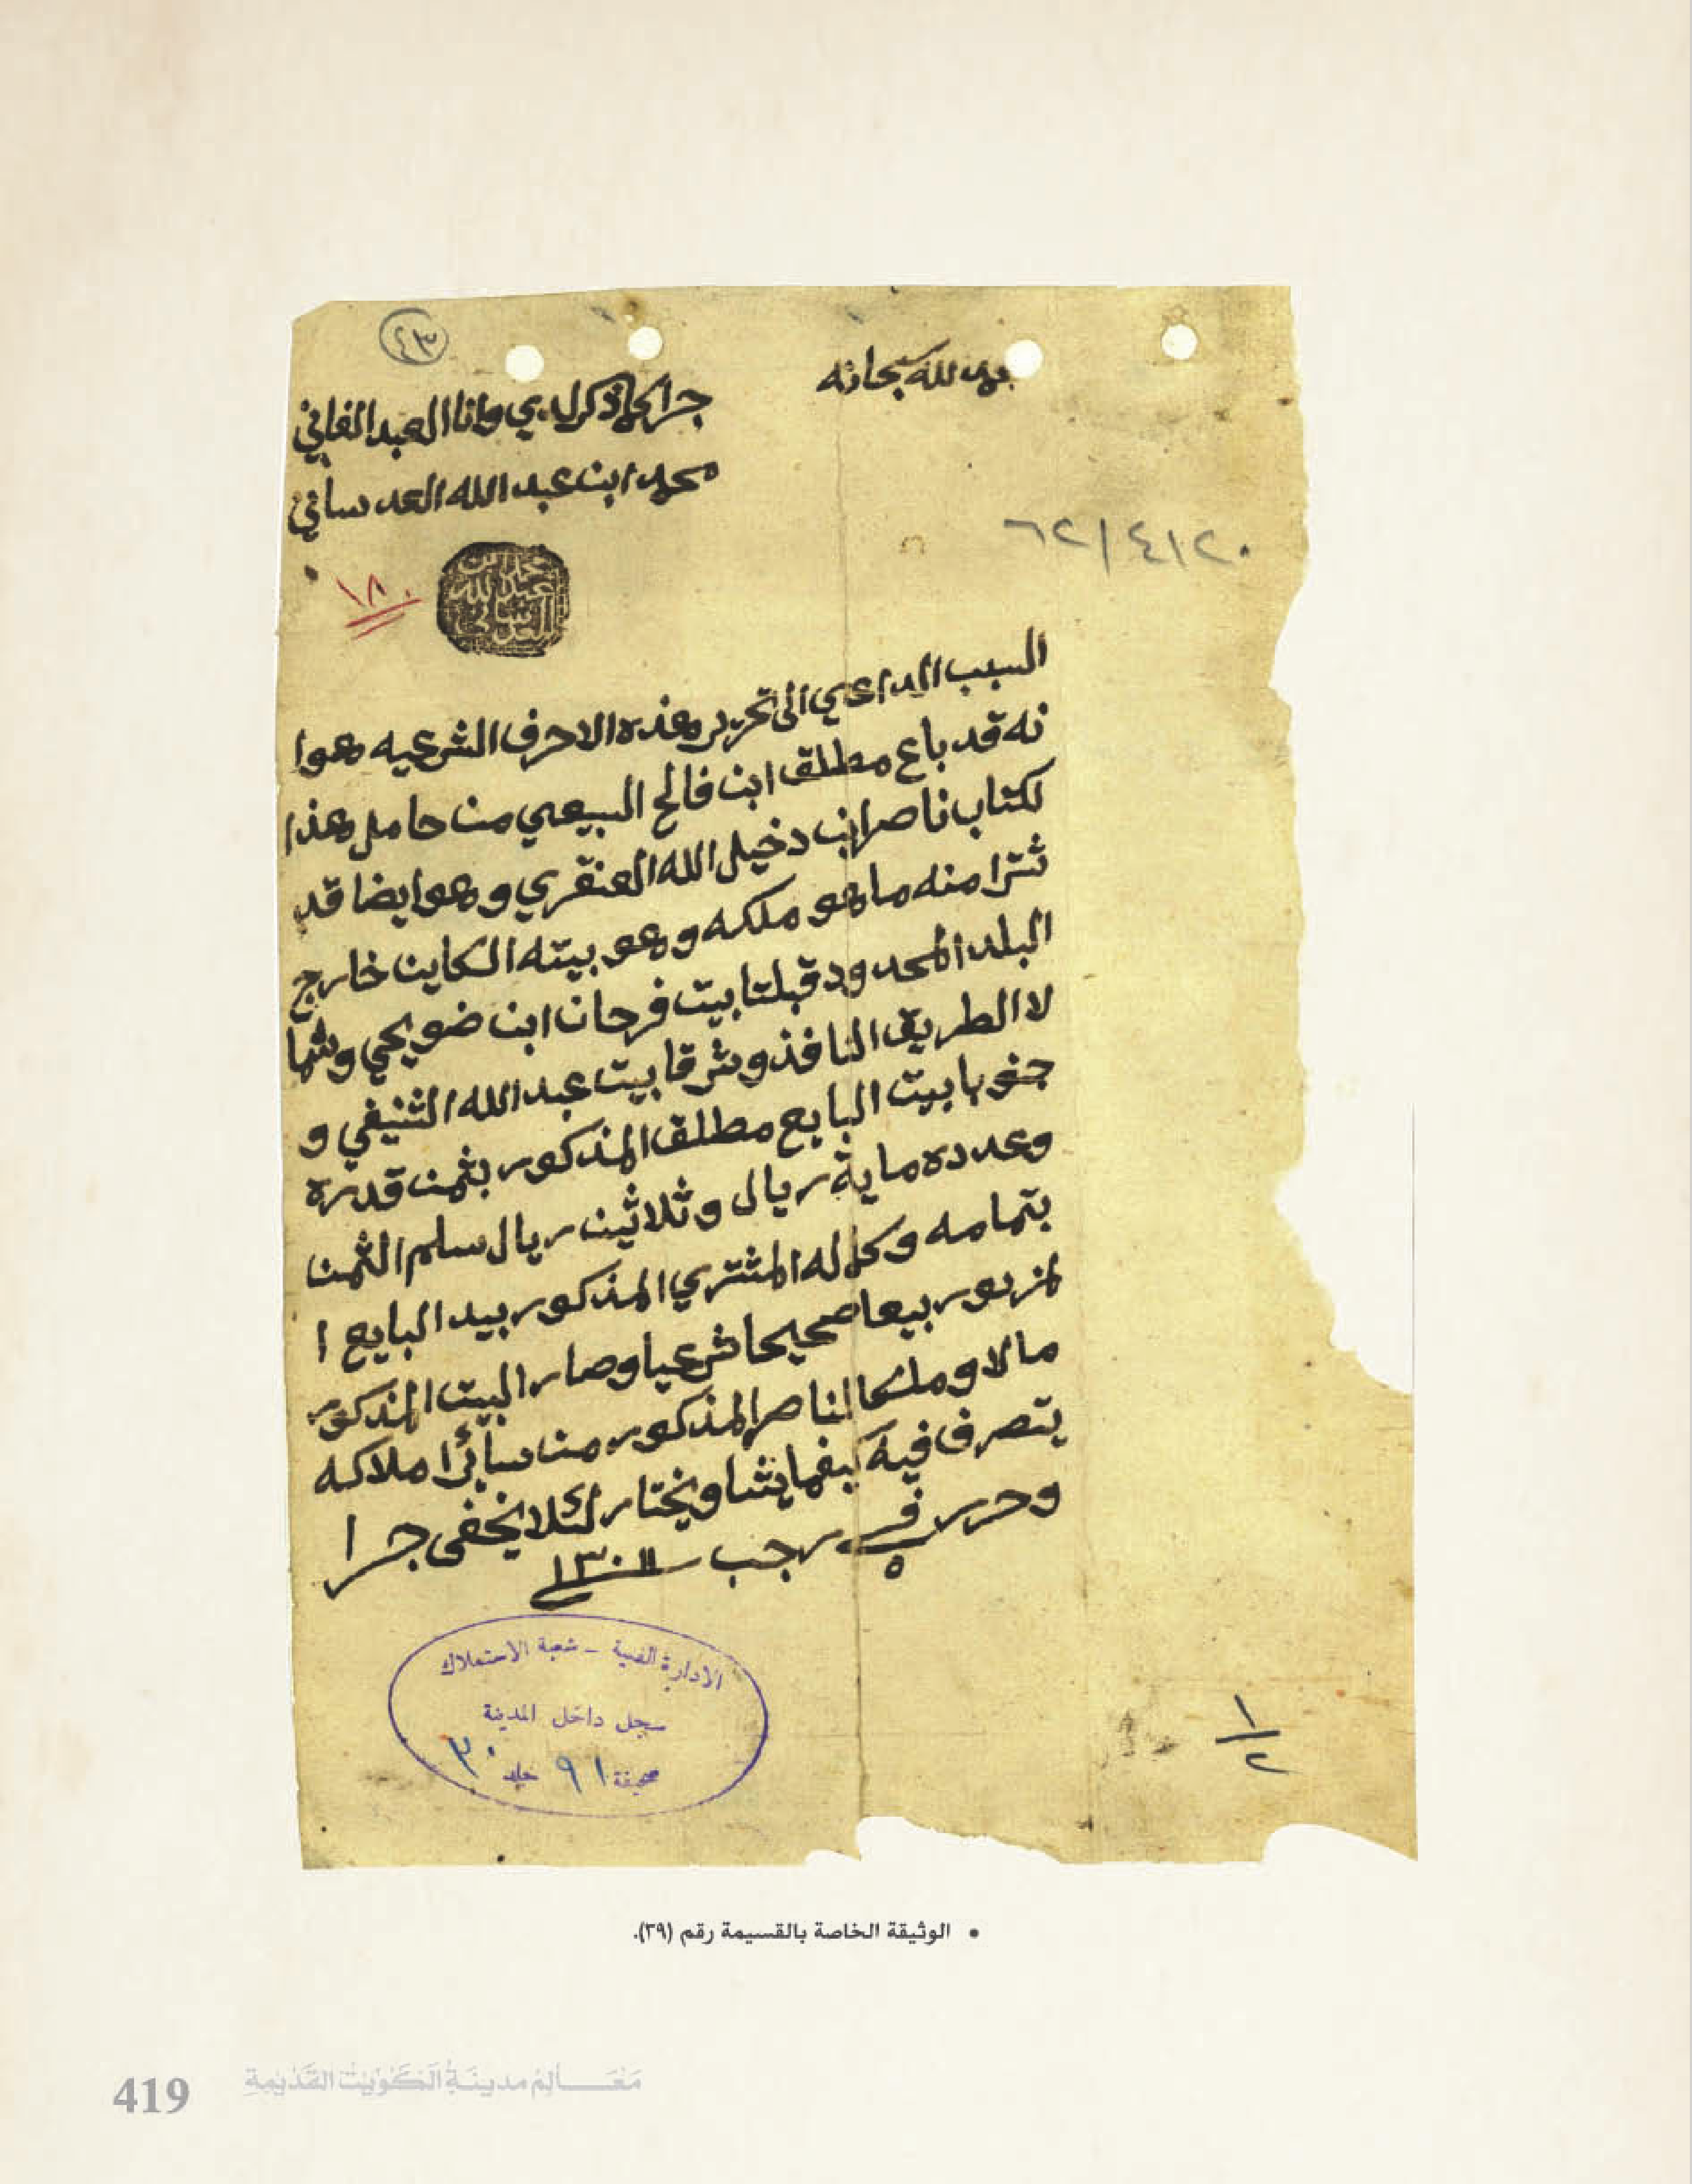 ٤٣
بحمد لله سبحانه
جرا كما ذكر لدي وانا العبد الفاني
محمد ابن عبد الله العدساني
٦٢/٤١٢٠
١٨٠
محمد ابن عبد الله العدساني
السبب الداعي الى تحرير هذه الاحرف الشرعيه هوا
نه قد باع مطلق ابن فالح السبيعي من حامل هذا
لكتاب ناصر ابن دخيل الله العنقري وهوا يضا قد
شترا منه ما هو ملكه وهو بيته الكاين خارج
البلد المحدود قبلتا بيت فرحان ابن ضويحي وشما
لا الطريق النافذ وشرقا بيت عبد الله الثنيفي و
جنوبا بيت البايع مطلق المذكور بثمن قدره
وعدده ماية ريال وثلاثين ريال سلم الثمن
بتمامه وكماله المشتري المذكور بيد البايع ا
لمزبور بيعا صحيحا شرعيا وصار البيت المذكور
مالا وملكا لناصر المذكور من سائر املاكه
يتصرف فيه كيفما يشا ويختار لئلا يخفى جرا
وحرر في ٥ رجب سنة
الادارة الفنية - شعبة الاستملاك
سجل داخل المدينة
صحيفة ٩١ جلد ٣٠
١/٢
• الوثيقة الخاصة بالقسيمة رقم (٣٩).
419 مَعَـــالِمُ مدينَةِ الكُوَيْت القَدْيمَةِ